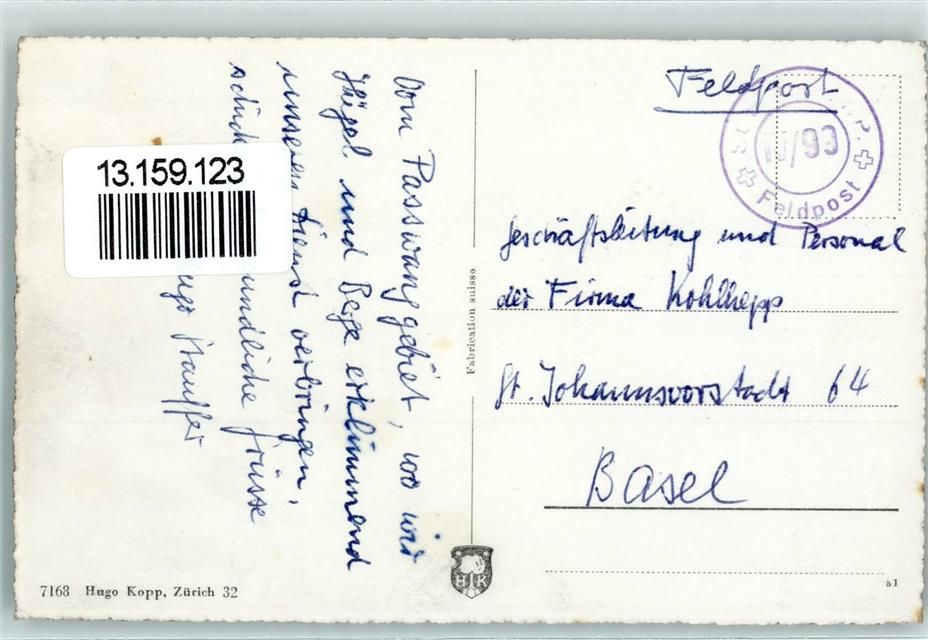 13.159.123
Vom Passwanggebiet, wo wir
Hügel und Berge erklimmend
unseren Dienst verbringen,
undliche Grüsse
Hugo Stauffer
Fabrication suisse
Feldpost
Feldpost
Geschäftsleitung und Personal
der Firma Kohlhepp
St. Johannsvorstadt 64
Basel
HK
7168 Hugo Kopp, Zürich 32